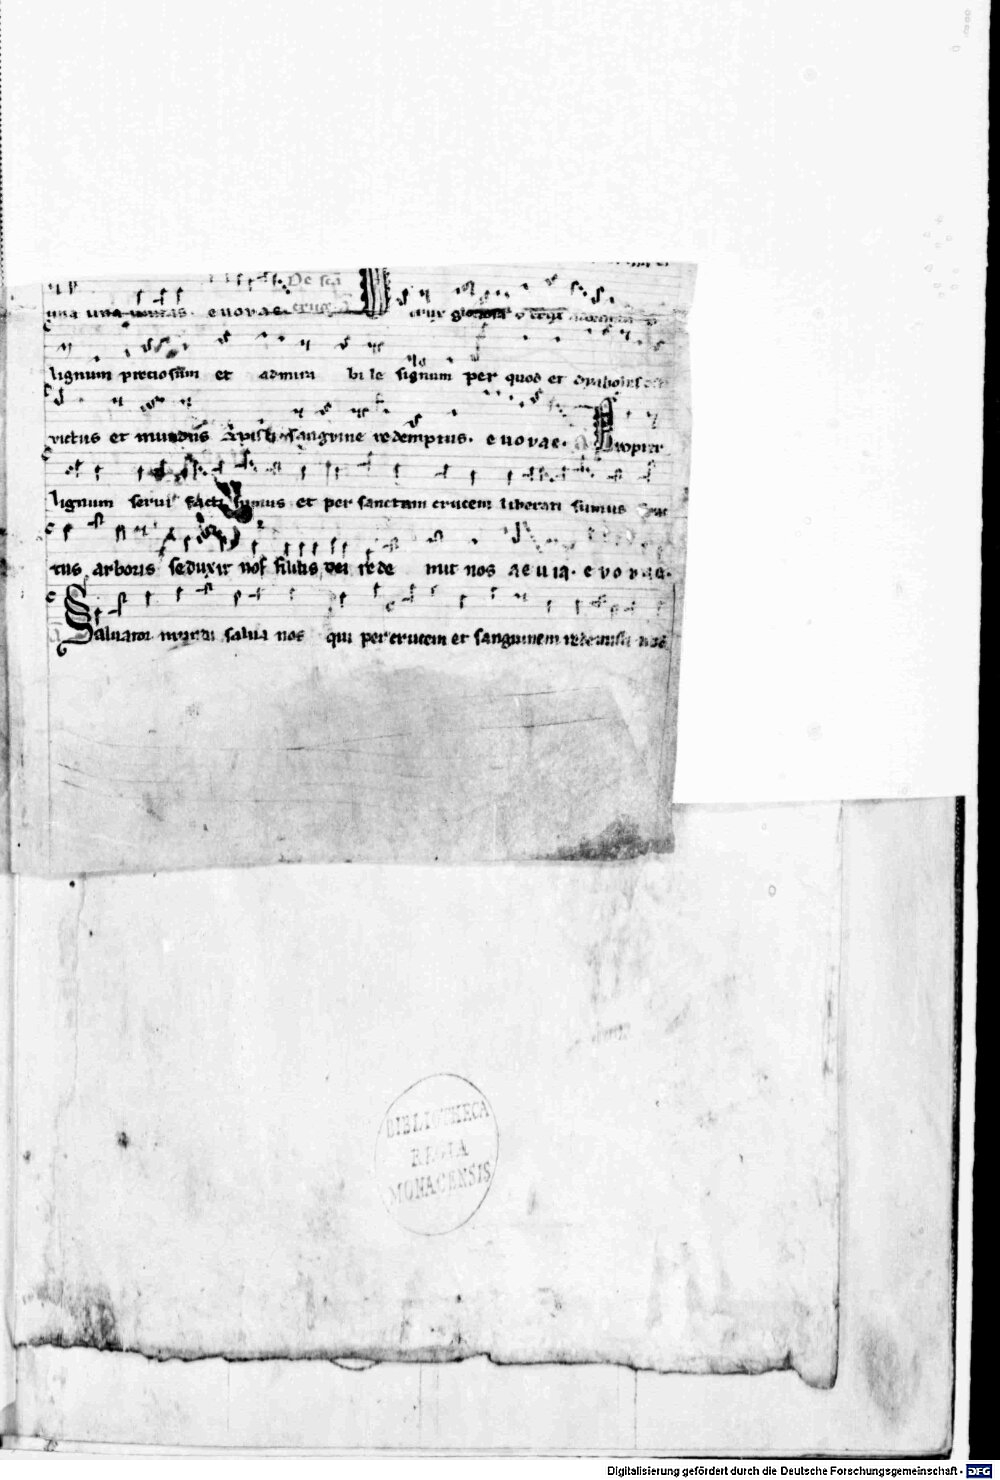 una una unitas euovae De sca cruce
crux gloriosa o crux adoranda o
lignum preciosum et admirabile signum per quod et dyabolus est
victus et mundus Xpisti sanguine redemptus. euovae. Propter
lignum serui facti sumus et per sanctam crucem liberati sumus
tus arboris seduxit nos filius dei redemit nos aeuia. euouae.
Saluator mundi salua nos qui per crucem et sanguinem redemisti nos
BIBLIOTHECA
REGIA
MONACENSIS
Digitalisierung gefördert durch die Deutsche Forschungsgemeinschaft - DFG